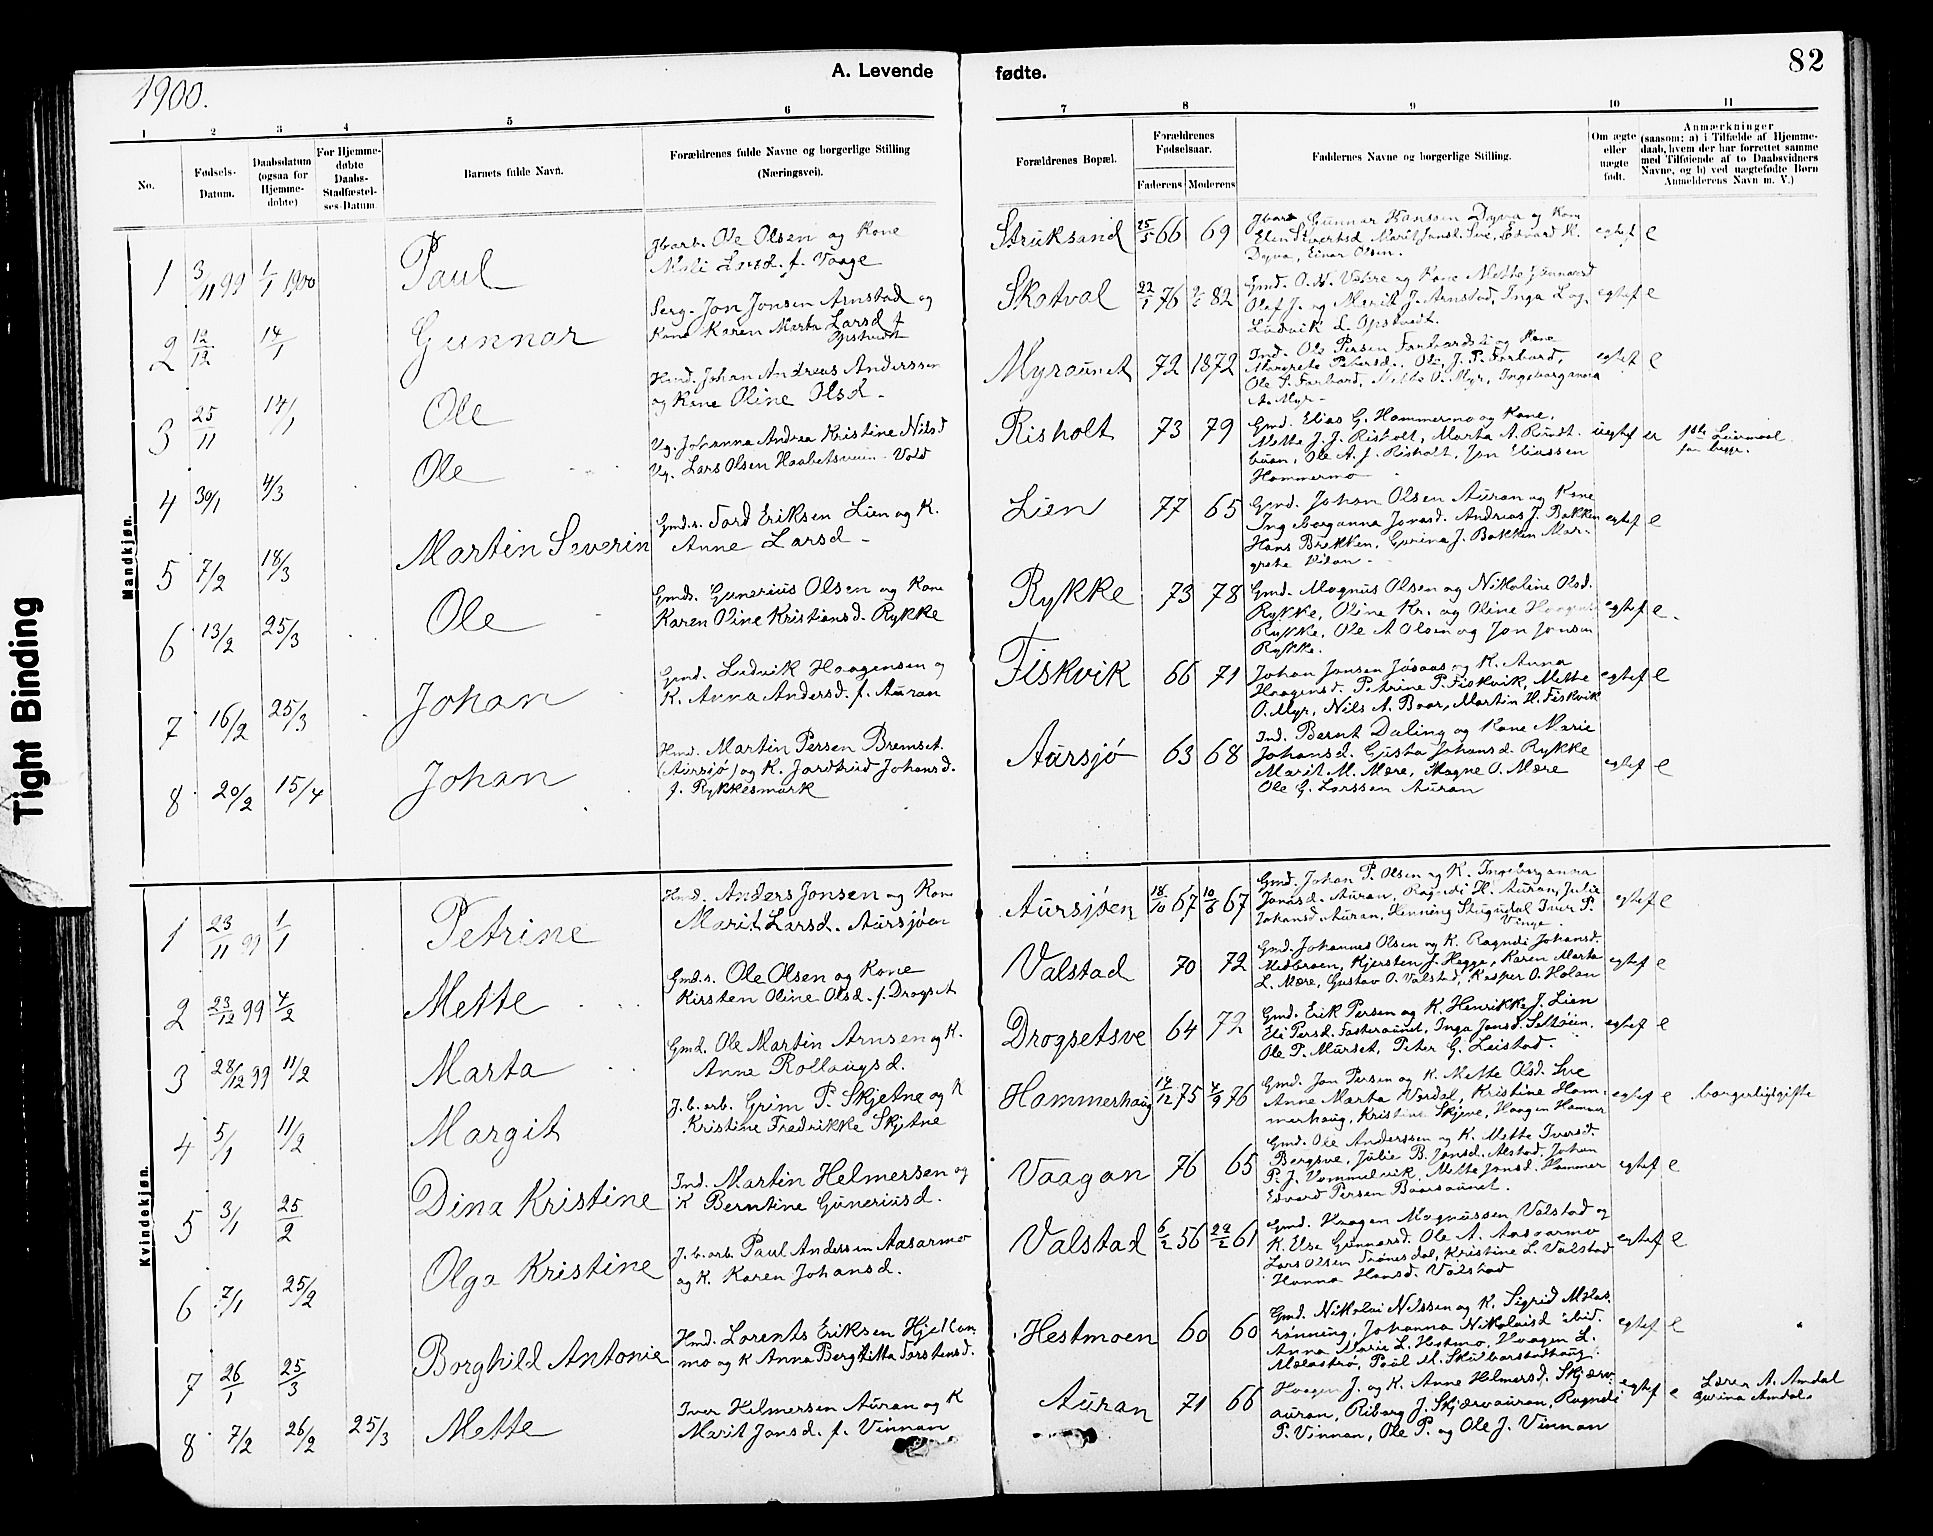 1900.
A. Levende
fødte.
82
1 2 3 4 5 6 7 8 9 10 11
No.
Fødsels-Datum.
Daabsdatum (ogsaa for Hjemmedøbte)
For Hjemmedøbte Daabs-Stadfæstelses-Datum
Barnets fulde Navn.
Forældrenes fulde Navne og borgerlige Stilling (Næringsvei).
Forældrenes Bopæl.
Forældrenes Fødselsaar.
Faderens
Moderens
Faddernes Navne og borgerlige Stilling.
Om ægte eller uægte født.
Anmærkninger
(saasom: a) i Tilfælde af Hjemmedaab, hvem der har forrettet samme med Tilføiende af to Daabsvidners Navne, og b) ved uægtefødte Børn Anmelderens Navn m. V.)
Tight Binding
Mandkjøn.
1 3/11 99 1/1 1900 Paul
Jbarb. Ole Olsen og Kone
f. Vaage
Struksand 25/5 66 69
Gunnar Hanssen Dyva og Kone
Dyva, Einar Olsen.
egtef e
2 12/12 14/1 Gunnar
Serg. Jon Jonsen Arnstad og
Kone Karen Marta Larsd. f.
Opstvedt
Skatval 22/1 76 82
Gmd. O. H. Vatre og Kone Mette Gunnarsd
Olaf J. og Marit J. Arnstad, Inga L og
Ludvik L. Opstvedt.
egtef e
3 25/11 14/1 Ole
Hmd. Johan Andreas Anderssen
og Kone Oline Olsd.
Myraunet 72 1872
Ind. Ole Persen Forbord og Kone
Margrete Petersd., Ole J. P. Forbord,
Ole P. Forbord, Mette O. Myr, Ingeborganna
A. Myr.
egtef e
4 30/1 4/3 Ole
Ug. Johanna Andrea Kristine Nilsd
Ug. Lars Olsen Haabetsveien - Vold
Risholt 73 79
Gmd. Elias G. Hammermo og Kone,
Mette J. J. Risholt, Marta A. Rundt-
buan, Ole A. J. Risholt, Jon Eliassen
Hammermo
uegtef u
1ste Leiermaal
for begge.
5 7/2 18/3 Martin Severin
Gmds. Tord Eriksen Lien og K.
Anne Larsd.
Lien 77 65
Gmd. Johan Olsen Auran og Kone
Ingeborganna Jonasd. Andreas J. Bakken
Hans Brekken, Gurina J. Bakken Mar-
grete
egtef e
6 13/2 25/3 Ole
Gmds. Gunerius Olsen og Kone
Karen Oline Kristiansd. Rykke
Rykke 73 78
Gmd. Magnus Olsen og Nikoline Olsd.
Rykke, Oline Kr. og Oline
Rykke, Ole A Olsen og Jon Jonsen
Rykke.
egtef e.
7 16/2 25/3 Johan
Gmd. Ludvik Haagensen og
K. Anna Andersd. f. Auran
Fiskvik 66 71
Johan Jonsen Jøsaas og K. Anna
Haagensd. Petrine P. Fiskvik, Mette
O. Myr, Nils A. Baar, Martin H. Fiskvik
egtef e
8 20/2 15/4 Johan
Hmd. Martin Persen Bremset
(Aursjø) og K. Jardthrud Johansd.
f. Rykkesmark
Aursjø 63 68
Ind. Bernt Daling og Kone Marie
Johansd. Gusta Johansd. Rykke
Marit M. Mære, Magne O. Mære
Ole G. Larssen Auran
egtef e
Kvindekjøn.
1 23/11 99 1/1 Petrine
Hmd. Anders Jonsen og Kone
Marit Larsd. Aursjøen
Aursjøen 18/10 67 10/6 67
Gmd. Johan P. Olsen og K. Ingeborganna
Jonasd. Auran, Ragndi H. Auran, Julie
Johansd Auran, Henning Stugudal Iver P.
Vinge.
egtef e
2 23/12 99 4/2 Mette
Gmds. Ole Olsen og Kone
Kirsten Oline Olsd. f. Drogset
Valstad 70 72
Gmd. Johannes Olsen og K. Ragndi Johansd.
Midbroen, Kjersten J. Hegge, Karen Marta
L. Mære, Gustav O. Valstad, Kasper O. Holan
egtef e
3 28/12 99 11/2 Marta
Gmd. Ole Martin Arnsen og K.
Anne Rollaugsd.
Drogsetsve 64 72
Gmd. Erik Persen og K. Henrikke J. Lien
Eli Persd. Fosteraunet, Inga Jonsd. Seltøien.
Ole P. Murset, Peter G. Leistad.
egtef e
4 5/1 11/2 Margit
J.b.arb. Grim P. Skjetne og K
Kristine Fredrikke Skjetne
Hammerhaug 14/12 75 4/9 76
Gmd. Jon Persen og K. Mette Olsd. Sve
Anne Marta Vardal, Kristine Ham-
merhaug, Kristine Skjeve, Haagen Hammer
egtef e
borgerligt gifte
5 3/1 25/2 Dina Kristine
Ind. Martin Helmersen og
K Berntine Guneriusd.
Vaagan 76 65
Gmd. Ole Anderssen og K. Mette Iversd.
Bergsve, Julie B. Jonsd. Alstad, Johan
P. J. Vammelvik, Mette Jonsd. Hammer
Edvard Persen Baarsaunet.
egtef e
6 7/1 25/2 Olga Kristine
J.b.arb. Paul Andersen Aasarmo
og K. Karen Johansd.
Valstad 6/2 56 22/2 61
Gmd. Haagen Magnussen Valstad og
K. Else Gunnarsd. Ole A. Aasarmo
Lars Olsen Trønesdal, Kristine L. Valstad
Hanna Hansd. Valstad
egtef e
7 26/1 25/3 Borghild Antonie
Hmd. Lorents Eriksen Hjellan-
mo og K Anna Bergitta Torstensd.
Hestmoen 60 60
Gmd. Nikolai Nilssen og K. Sigrid Mælas-
rønning, Johanna Nikolaisd ibid.
Anna Marie L. Hestmo, Haagen L.
Mælastrø, Paul M. Skulbørstadhaug
egtef e
8 7/2 26/2 25/3 Mette
Iver Hilmersen Auran og K
Marit Jonsd. f. Vinnan
Auran 71 66
Haagen J. og K. Anne Hilmersd. Skjerv-
auran, Riborg J. Skjærvauran, Ragndi
P. Vinnan, Ole P. og Ole J. Vinnan
egtef e
Lærer A. Amdal
Gurina Amdal.